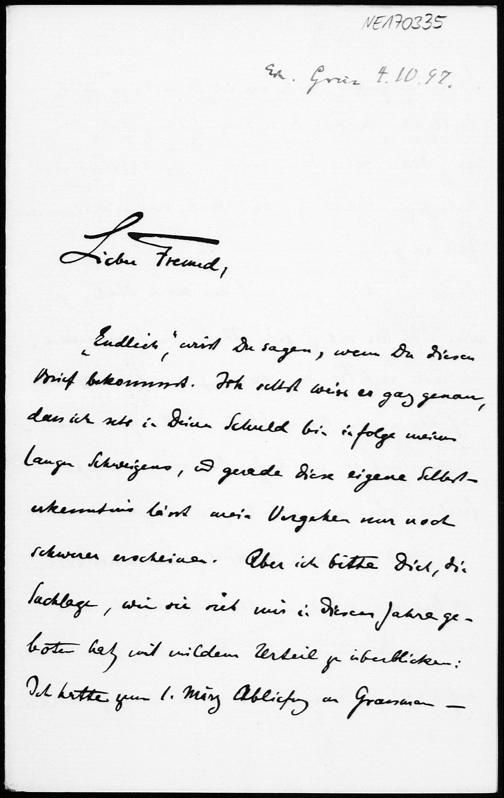 NE170335
Grüz 4.10.97.
Lieber Freund,
„Endlich“, wirst Du sagen, wenn Du diesen
Brief bekommst. Ich selbst weiss es ganz genau,
dass ich sehr in Deiner Schuld bin infolge meines
langen Schweigens, und gerade diese eigene Selbst-
erkenntnis lässt mein Vergehen nur noch
schwerer erscheinen. Aber ich bitte Dich, die
Sachlage, wie sie sich mir in diesem Jahre ge-
boten hat, mit mildem Urteil zu überblicken:
Ich hatte zum 1. März Ablieferung an Grassmann —